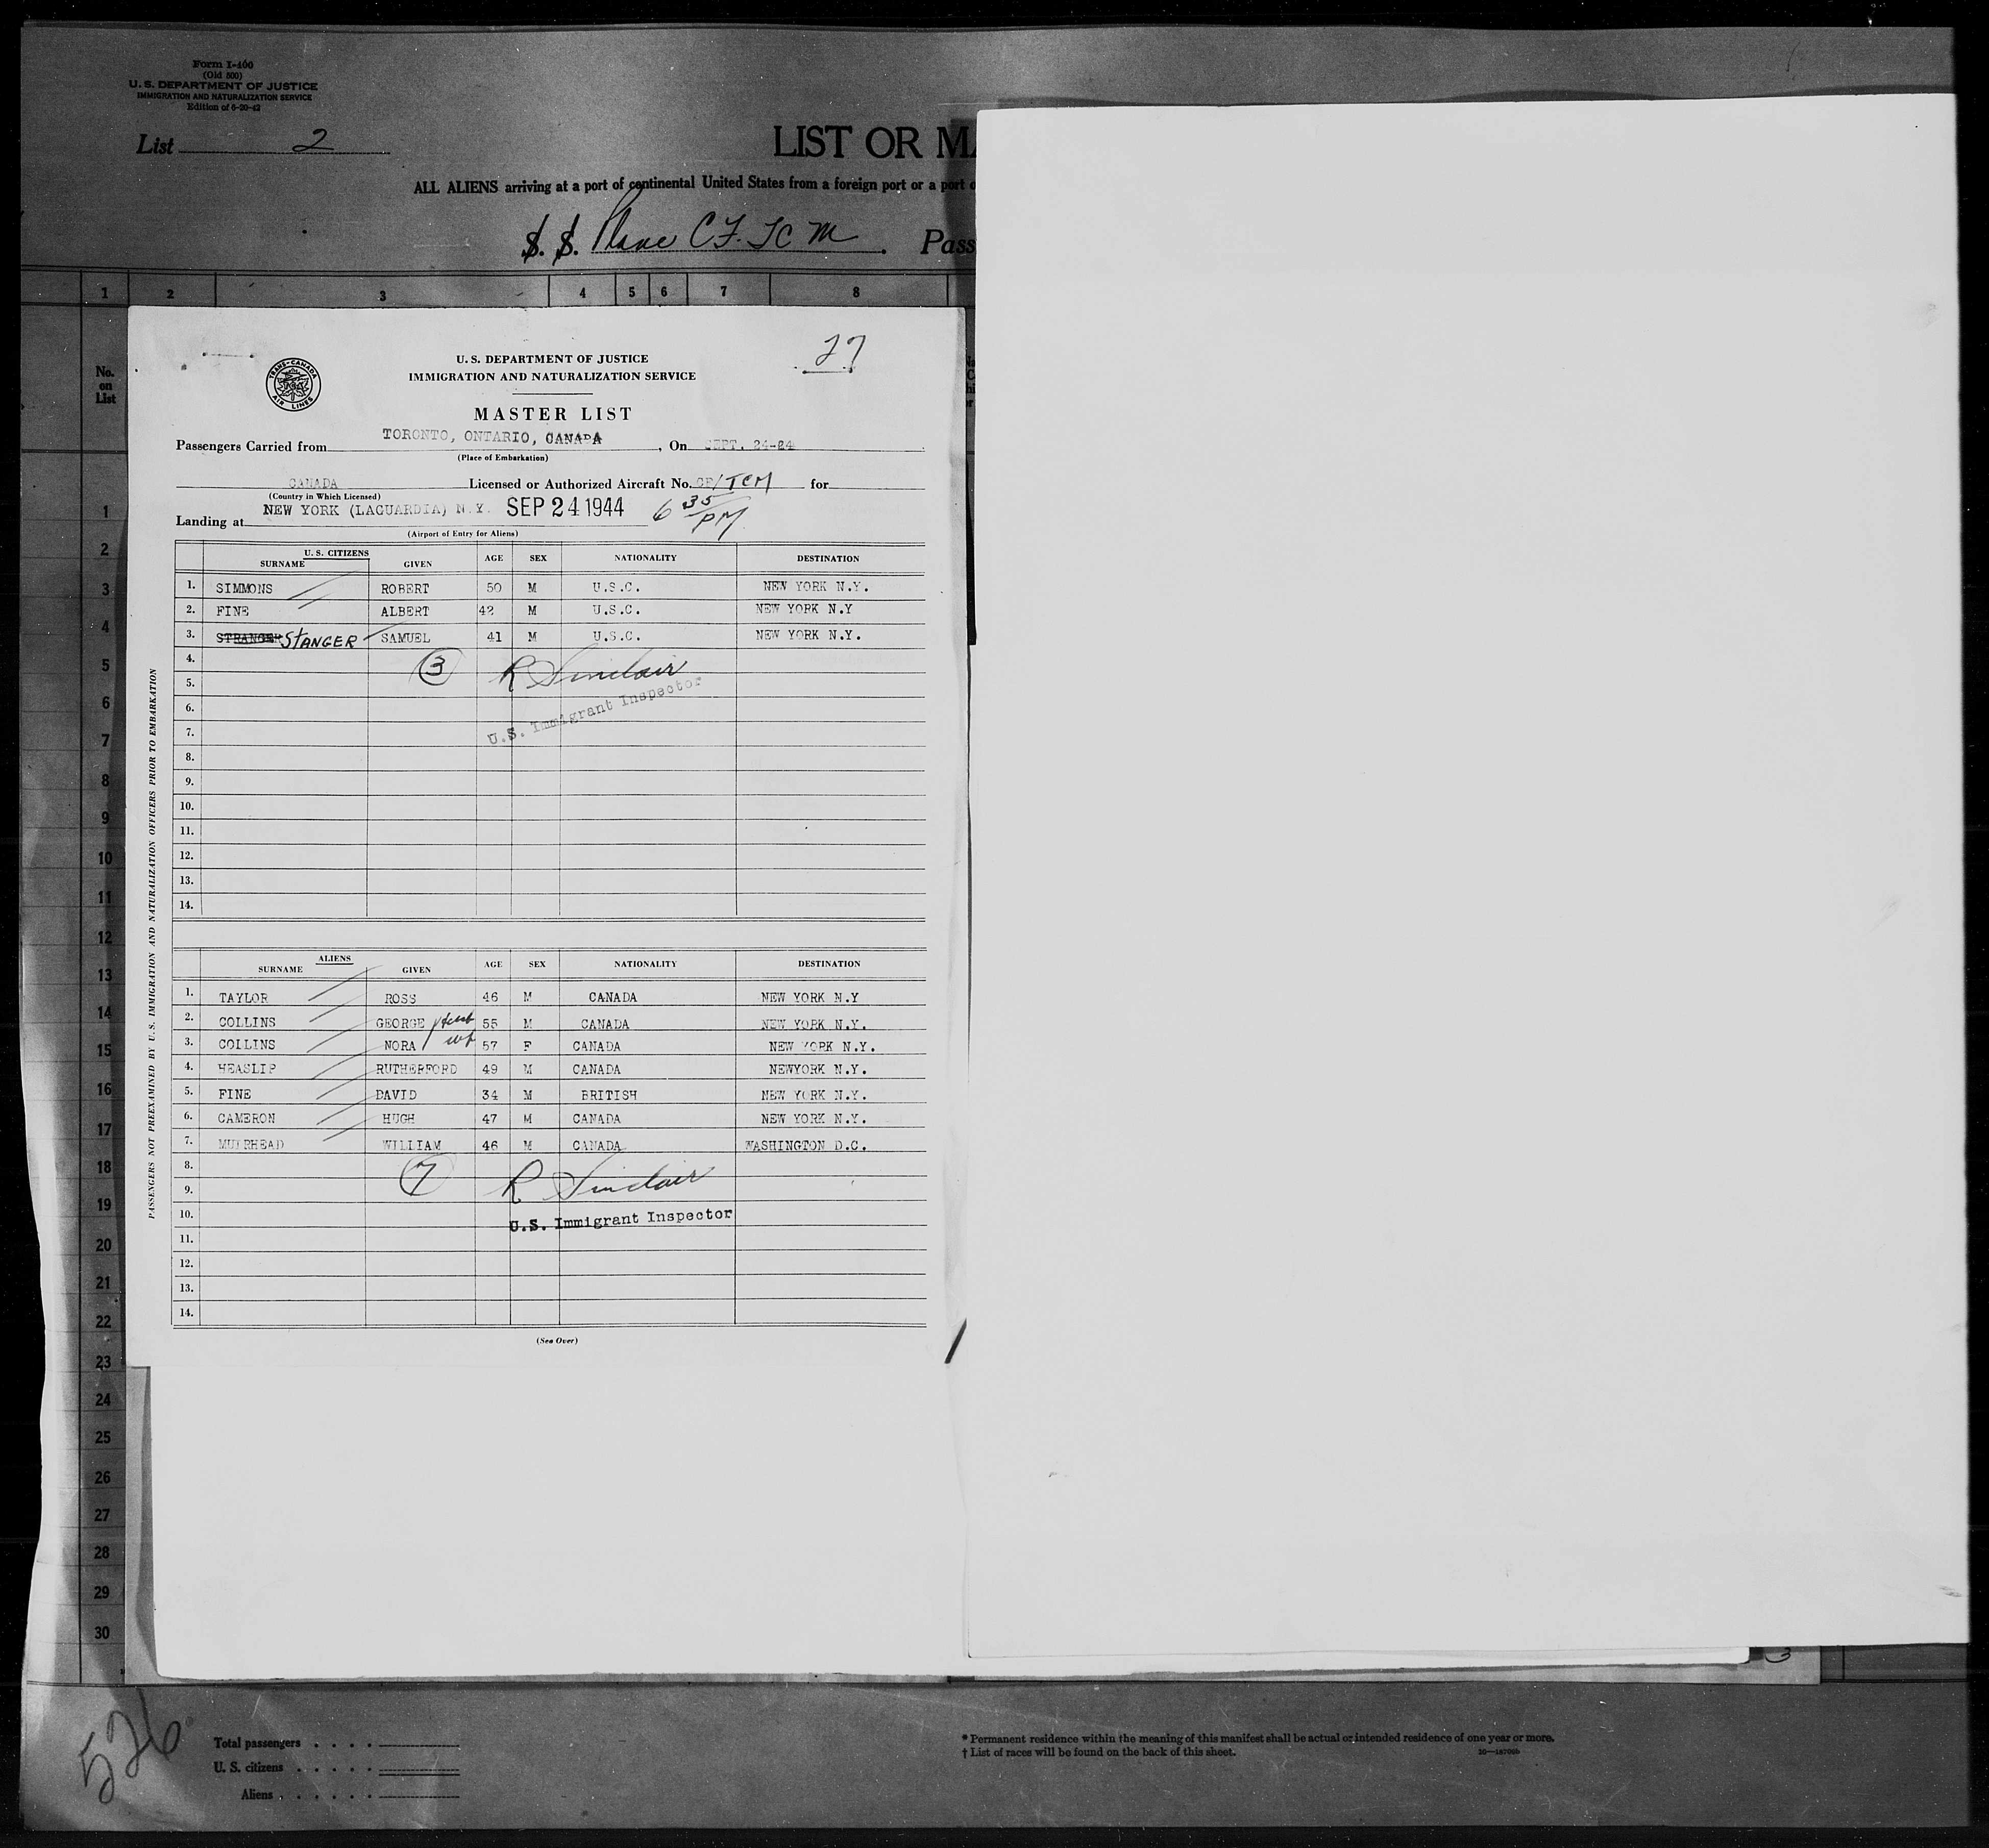 Form I-466
(Old 500)
U. S. DEPARTMENT OF JUSTICE
IMMIGRATION AND NATURALIZATION SERVICE
Edition of 6-20-42
List 2
LIST OR MA
ALL ALIENS arriving at a port of continental United States from a foreign port or a port o
S. S. Plane CF. TCM. Pass
1 2 3 4 5 6 7 8
No. on List
27
TRANS-CANADA AIR LINES
U. S. DEPARTMENT OF JUSTICE
IMMIGRATION AND NATURALIZATION SERVICE
MASTER LIST
Passengers Carried from TORONTO, ONTARIO, CANADA, On SEPT. 24-24
(Place of Embarkation)
CANADA Licensed or Authorized Aircraft No. CF/TCM for
(Country in Which Licensed)
Landing at NEW YORK (LAGUARDIA) N.Y. SEP 24 1944 6 35 PM
(Airport of Entry for Aliens)
U. S. CITIZENS
SURNAME GIVEN AGE SEX NATIONALITY DESTINATION
1. SIMMONS ROBERT 50 M U.S.C. NEW YORK N.Y.
2. FINE ALBERT 42 M U.S.C. NEW YORK N.Y
3. STRANGER STANGER SAMUEL 41 M U.S.C. NEW YORK N.Y.
4. 3 R Sinclair
5.
6. U.S. Immigrant Inspector
7.
8.
9.
10.
11.
12.
13.
14.
ALIENS
SURNAME GIVEN AGE SEX NATIONALITY DESTINATION
1. TAYLOR ROSS 46 M CANADA NEW YORK N.Y
2. COLLINS GEORGE 55 M CANADA NEW YORK N.Y.
3. COLLINS NORA wf 57 F CANADA NEW YORK N.Y.
4. HEASLIP RUTHERFORD 49 M CANADA NEWYORK N.Y.
5. FINE DAVID 34 M BRITISH NEW YORK N.Y.
6. CAMERON HUGH 47 M CANADA NEW YORK N.Y.
7. MUIRHEAD WILLIAM 46 M CANADA WASHINGTON D.C.
8. 7 R Sinclair
9.
10. U.S. Immigrant Inspector
11.
12.
13.
14.
(See Over)
PASSENGERS NOT PREEXAMINED BY U. S. IMMIGRATION AND NATURALIZATION OFFICERS PRIOR TO EMBARKATION
1
2
3
4
5
6
7
8
9
10
11
12
13
14
15
16
17
18
19
20
21
22
23
24
25
26
27
28
29
30
3
526
Total passengers
U. S. citizens
Aliens
* Permanent residence within the meaning of this manifest shall be actual or intended residence of one year or more.
† List of races will be found on the back of this sheet.